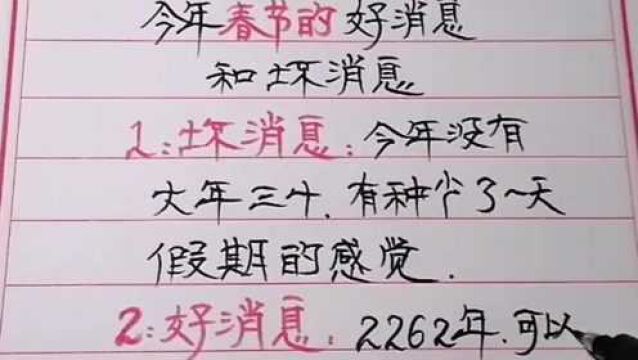 今年春节的好消息
和坏消息
1:坏消息:今年没有
大年三十.有种少了一天
假期的感觉.
2:好消息:2262年.可以